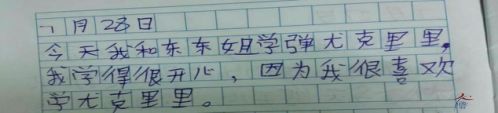 7月28日
今天我和东东姐学弹尤克里里,
我学得很开心，因为我很喜欢
学尤克里里。